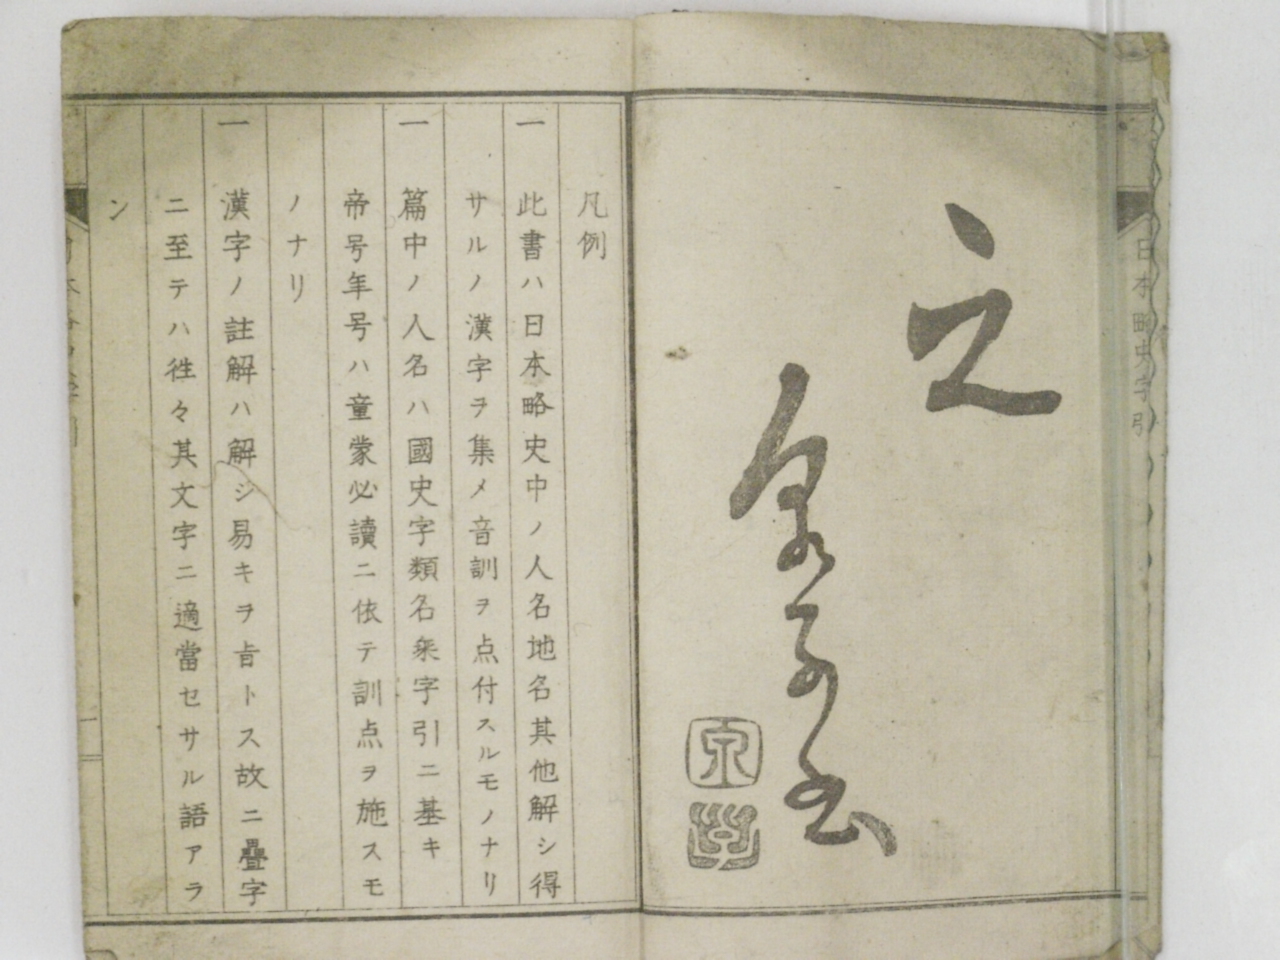 日本略史字引
之
凡例
一 此書ハ日本略史中ノ人名地名其他解シ得
サルノ漢字ヲ集メ音訓ヲ点付スルモノナリ
一 篇中ノ人名ハ國史字類名乗字引ニ基キ
帝号年号ハ童蒙必讀ニ依テ訓点ヲ施スモ
ノナリ
一 漢字ノ註解ハ解シ易キヲ旨トス故ニ疊字
ニ至テハ徃々其文字ニ適當セサル語アラ
ン